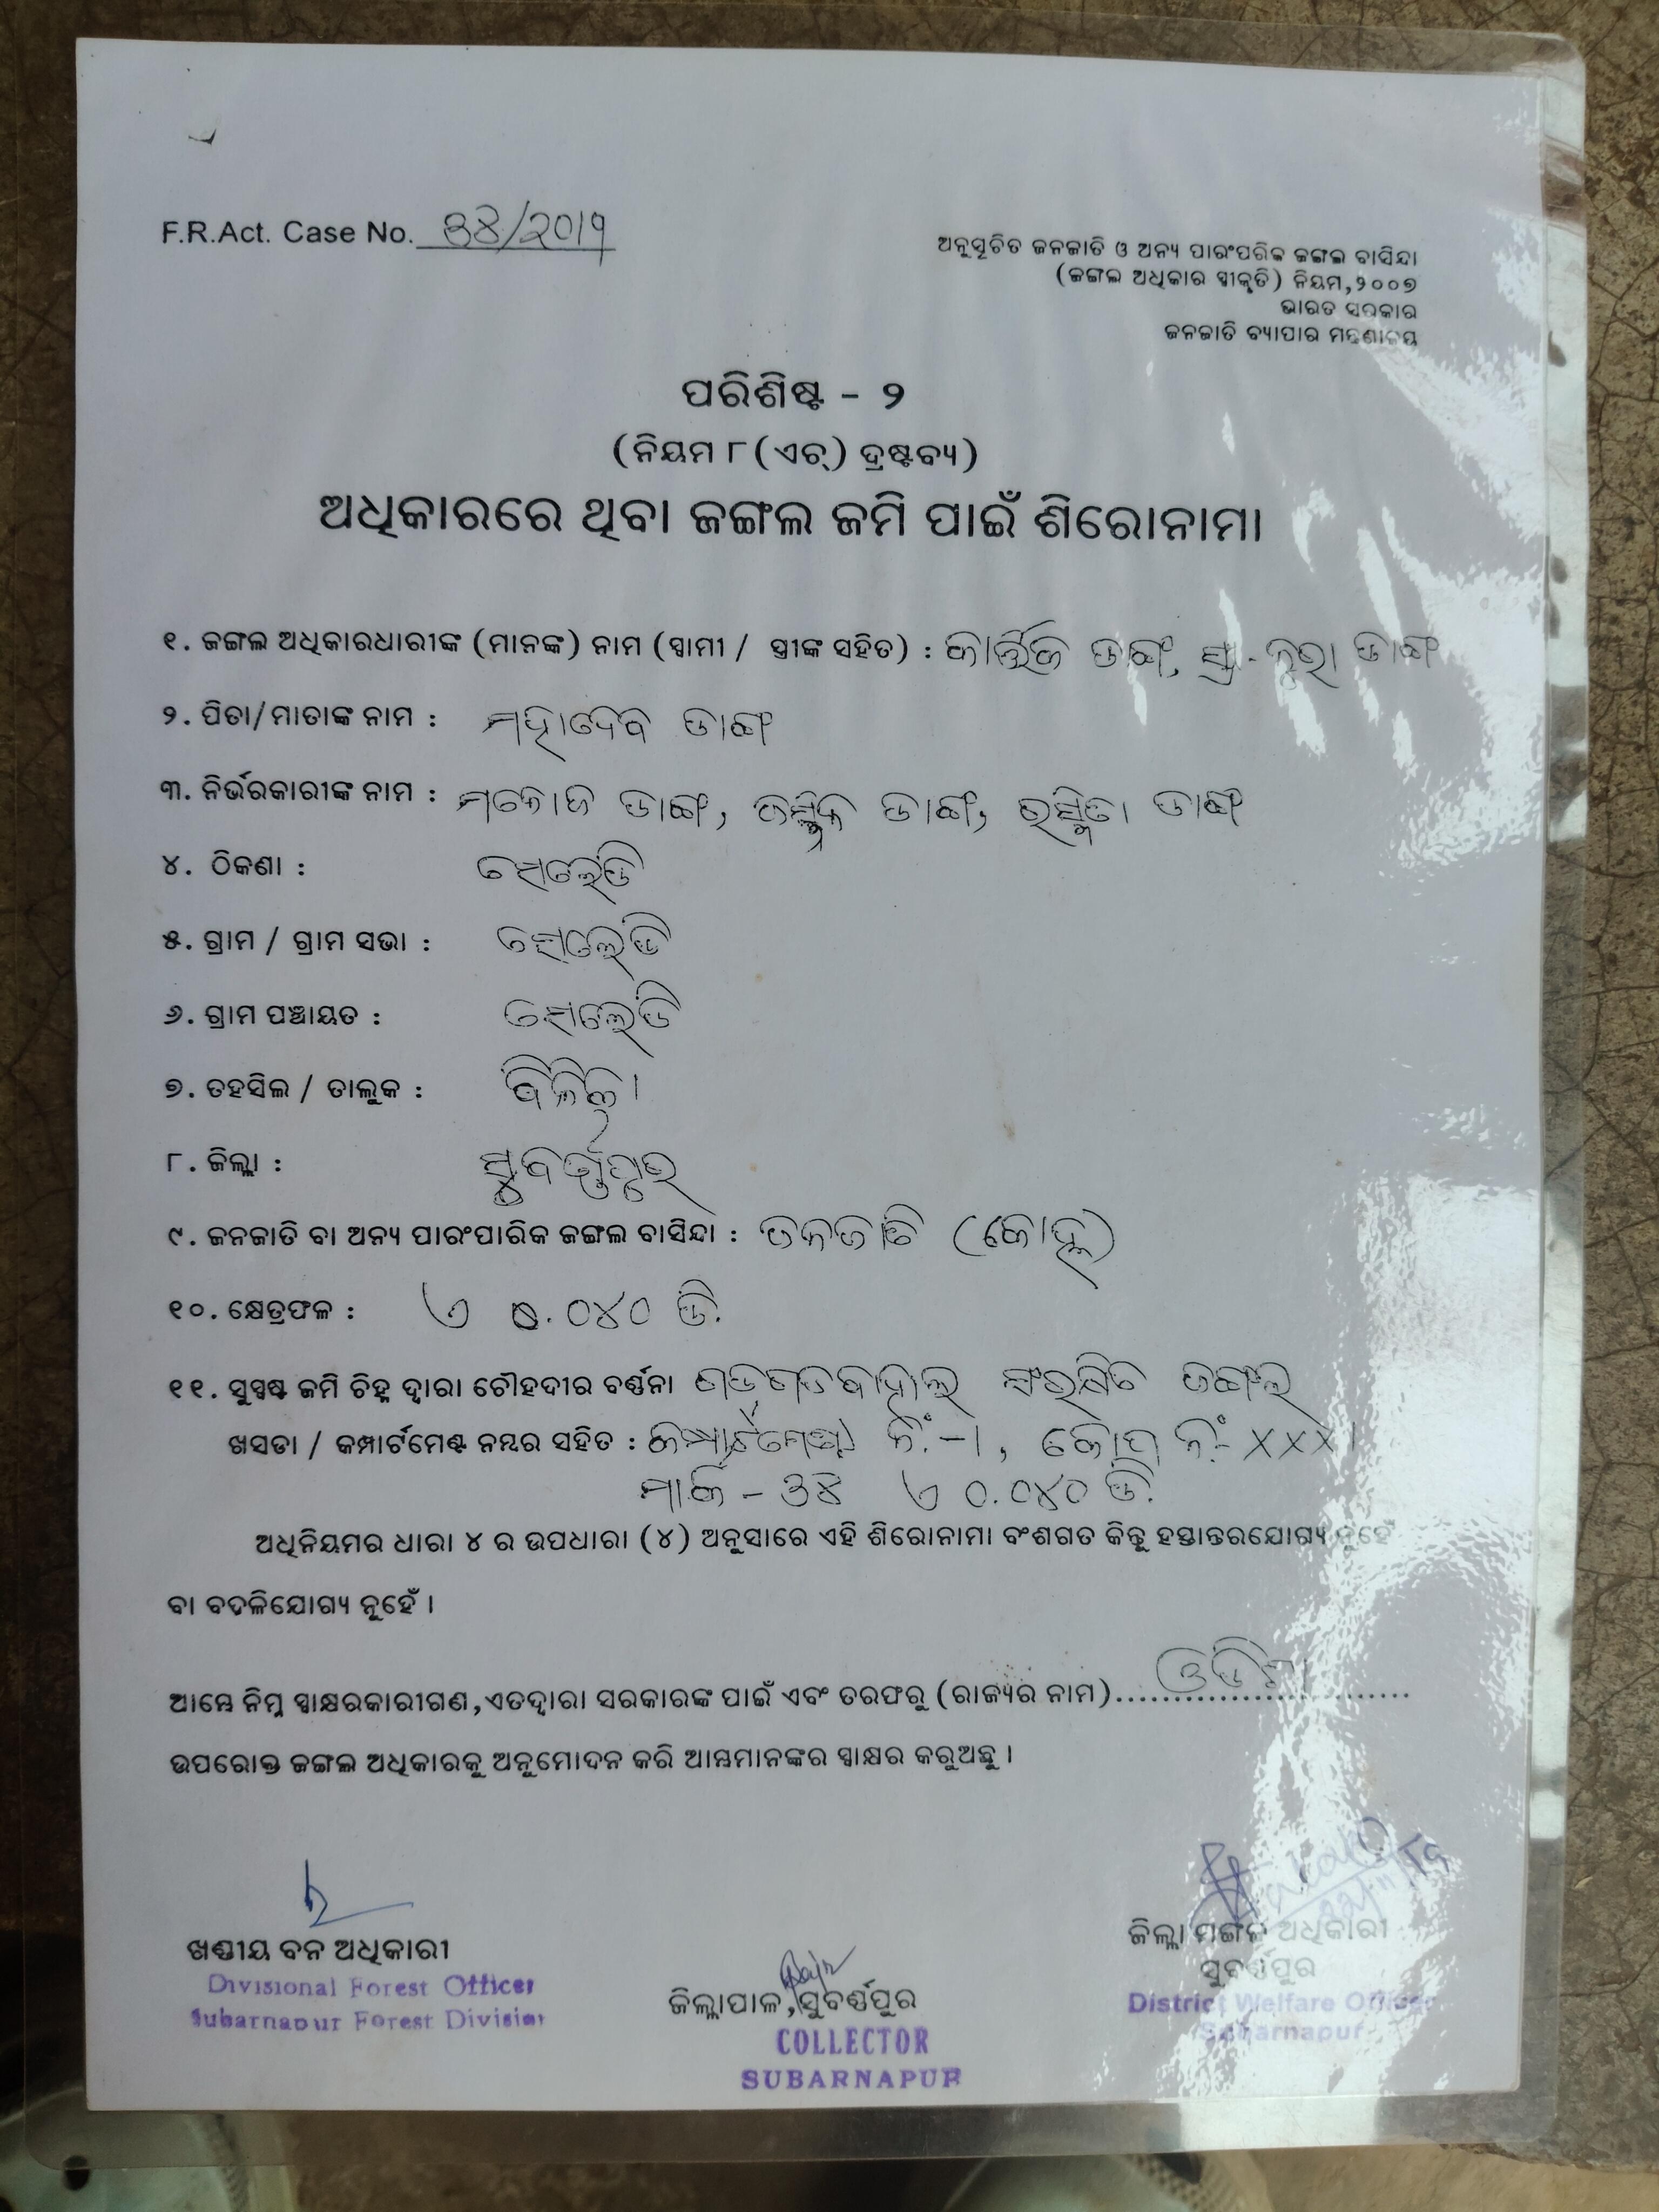 F.R.Act. Case No. ୩୪/୨୦୧୨
ଅନୁସୂଚିତ ଜନଜାତି ଓ ଅନ୍ୟ ପାରଂପରିକ ଜଙ୍ଗଲ ବାସିନ୍ଦା
(ଜଙ୍ଗଲ ଅଧିକାର ସ୍ଵୀକୃତି) ନିୟମ,୨୦୦୭
ଭାରତ ସରକାର
ଜନଜାତି ବ୍ୟାପାର ମନ୍ତ୍ରଣାଳୟ
ପରିଶିଷ୍ଟ - ୨
(ନିୟମ ୮ (ଏଚ୍) ଦ୍ରଷ୍ଟବ୍ୟ)
ଅଧିକାରରେ ଥିବା ଜଙ୍ଗଲ ଜମି ପାଇଁ ଶିରୋନାମା
୧. ଜଙ୍ଗଲ ଅଧିକାରଧାରୀଙ୍କ (ମାନଙ୍କ) ନାମ (ସ୍ଵାମୀ / ସ୍ତ୍ରୀଙ୍କ ସହିତ) : କାର୍ତ୍ତିକ ଡାଙ୍ଗ, ସ୍ତ୍ରୀ- ଡାଙ୍ଗ
୨. ପିତା/ମାତାଙ୍କ ନାମ : ମହାଦେବ ଡାଙ୍ଗ
୩. ନିର୍ଭରକାରୀଙ୍କ ନାମ : ମନୋଜ ଡାଙ୍ଗ, ଡାଙ୍ଗ, ରସ୍ମିତା ଡାଙ୍ଗ
୪. ଠିକଣା : ସେଲେଡି
୫. ଗ୍ରାମ / ଗ୍ରାମ ସଭା : ସେଲେଡି
୬. ଗ୍ରାମ ପଞ୍ଚାୟତ : ସେଲେଡି
୭. ତହସିଲ / ତାଲୁକ : ବିନିକା
୮. ଜିଲ୍ଲା : ସୁବର୍ଣ୍ଣପୁର
୯. ଜନଜାତି ବା ଅନ୍ୟ ପାରଂପାରିକ ଜଙ୍ଗଲ ବାସିନ୍ଦା : ଜନଜାତି (କୋହ୍ଲ)
୧୦. କ୍ଷେତ୍ରଫଳ : ଏ ୦.୦୪୦ ଡି.
୧୧. ସୁସ୍ପଷ୍ଟ ଜମି ଚିହ୍ନ ଦ୍ୱାରା ଚୌହଦୀର ବର୍ଣ୍ଣନା ସଂରକ୍ଷିତ ଜଙ୍ଗଲ
ଖସଡା / କମ୍ପାର୍ଟମେଣ୍ଟ ନମ୍ବର ସହିତ : କମ୍ପାର୍ଟମେଣ୍ଟ ନଂ.-୧, ନଂ- XXX
- ୩୪ ଏ ୦.୦୪୦ ଡି.
ଅଧିନିୟମର ଧାରା ୪ ର ଉପଧାରା (୪) ଅନୁସାରେ ଏହି ଶିରୋନାମା ବଂଶଗତ କିନ୍ତୁ ହସ୍ତାନ୍ତରଯୋଗ୍ୟ ନୁହେଁ
ବା ବଦଳିଯୋଗ୍ୟ ନୁହେଁ ।
ଆମ୍ଭେ ନିମ୍ନ ସ୍ୱାକ୍ଷରକାରୀଗଣ,ଏତଦ୍ୱାରା ସରକାରଙ୍କ ପାଇଁ ଏବଂ ତରଫରୁ (ରାଜ୍ୟର ନାମ)....ଓଡିଶା....
ଉପରୋକ୍ତ ଜଙ୍ଗଲ ଅଧିକାରକୁ ଅନୁମୋଦନ କରି ଆମ୍ଭମାନଙ୍କର ସ୍ୱାକ୍ଷର କରୁଅଛୁ ।
ଖଣ୍ଡୀୟ ବନ ଅଧିକାରୀ
Divisional Forest Officer
Subarnapur Forest Division
ଜିଲ୍ଲାପାଳ,ସୁବର୍ଣ୍ଣପୁର
COLLECTOR
SUBARNAPUR
ଜିଲ୍ଲା ମଙ୍ଗଳ ଅଧିକାରୀ
ସୁବର୍ଣ୍ଣପୁର
District Welfare Officer
Subarnapur